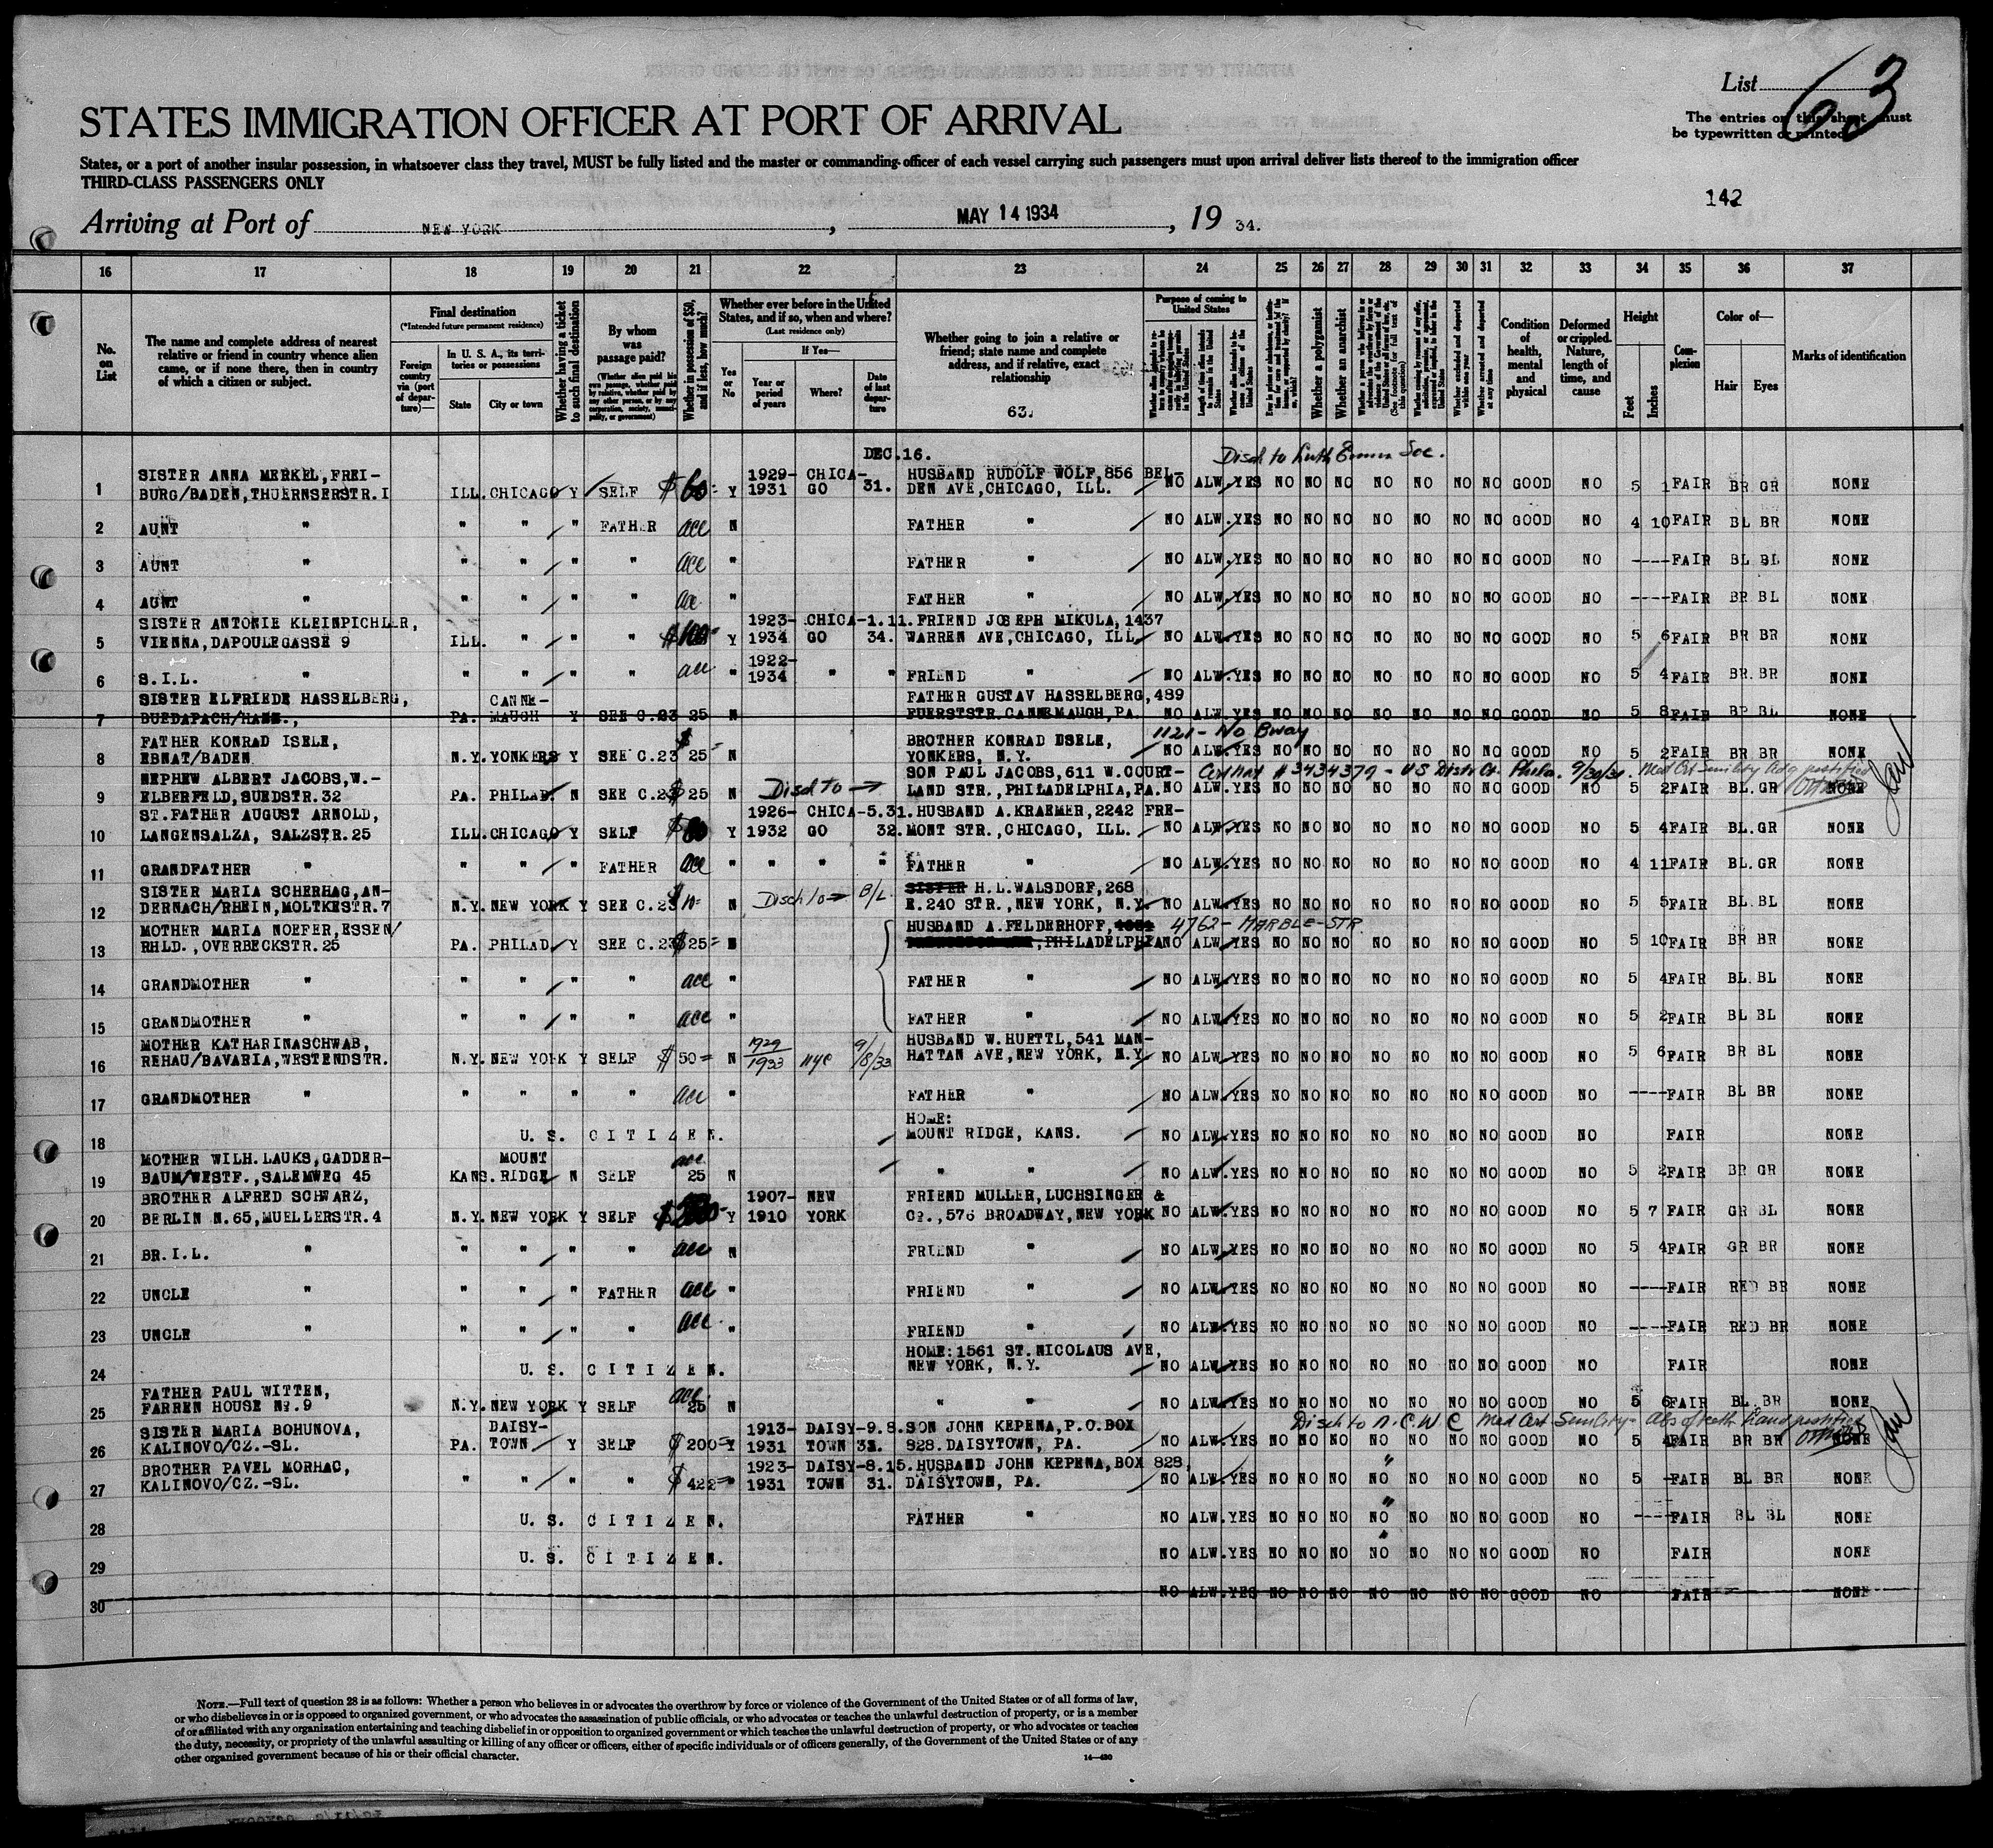 List 63
STATES IMMIGRATION OFFICER AT PORT OF ARRIVAL
The entries on this sheet must
be typewritten or printed
States, or a port of another insular possession, in whatsoever class they travel, MUST be fully listed and the master or commanding officer of each vessel carrying such passengers must upon arrival deliver lists thereof to the immigration officer
THIRD-CLASS PASSENGERS ONLY
142
Arriving at Port of NEW YORK, MAY 14 1934, 19 34.
16 17 18 19 20 21 22 23 24 25 26 27 28 29 30 31 32 33 34 35 36 37
No. on List
The name and complete address of nearest relative or friend in country whence alien came, or if none there, then in country of which a citizen or subject.
Final destination
(*Intended future permanent residence)
Foreign country via (port of departure)—
In U. S. A., its territories or possessions
State
City or town
Whether having a ticket to such final destination
By whom was passage paid?
(Whether alien paid his own passage, whether paid by relative, whether paid by any other person, or by any corporation, society, municipality, or government)
Whether in possession of $50, and if less, how much?
Whether ever before in the United States, and if so, when and where?
(Last residence only)
Yes or No
If Yes—
Year or period of years
Where?
Date of last departure
Whether going to join a relative or friend; state name and complete address, and if relative, exact relationship
63.
Purpose of coming to United States
Length of time alien intends to remain in the United States
Whether a polygamist
Whether an anarchist
Whether arrested and deported at any time
Condition of health, mental and physical
Deformed or crippled. Nature, length of time, and cause
Height
Feet
Inches
Complexion
Color of—
Hair
Eyes
Marks of identification
DEC.16. Disch to Luth Emm Soc.
SISTER ANNA MERKEL, FREI- 1929- CHICA- HUSBAND RUDOLF WOLF, 856 BEL-
1 BURG/BADEN, THUERNSERSTR.I ILL. CHICAGO Y SELF $60- Y 1931 GO 31. DEN AVE, CHICAGO, ILL. NO ALW. YES NO NO NO NO NO NO NO GOOD NO 5 1 FAIR BR GR NONE
2 AUNT " " " " FATHER acc N FATHER " NO ALW. YES NO NO NO NO NO NO NO GOOD NO 4 10 FAIR BL BR NONE
3 AUNT " " " " " acc " FATHER " NO ALW. YES NO NO NO NO NO NO NO GOOD NO ---- FAIR BL BL NONE
4 AUNT " " " " " acc " FATHER " NO ALW. YES NO NO NO NO NO NO NO GOOD NO ---- FAIR BR BL NONE
SISTER ANTONIE KLEINPICHLER, 1923- CHICA- 1.11. FRIEND JOSEPH MIKULA, 1437
5 VIENNA, DAPOULEGASSE 9 ILL. " " " $100- Y 1934 GO 34. WARREN AVE, CHICAGO, ILL. NO ALW. YES NO NO NO NO NO NO NO GOOD NO 5 6 FAIR BR BR NONE
1922-
6 S.I.L. " " " " " acc " 1934 " " FRIEND " NO ALW. YES NO NO NO NO NO NO NO GOOD NO 5 4 FAIR BR. BR NONE
SISTER ELFRIEDE HASSELBERG, CANNE- FATHER GUSTAV HASSELBERG, 489
7 BUEDAPACH/HANN., PA. MAUGH Y SEE C.23 25 N FUERSTSTR. CANNEMAUGH, PA. NO ALW. YES NO NO NO NO NO NO NO GOOD NO 5 8 FAIR BR BL NONE
FATHER KONRAD ISELE, BROTHER KONRAD ESELE, 1121 - No Bway
8 EBNAT/BADEN N.Y. YONKERS Y SEE C.23 $25- N YONKERS, N.Y. NO ALW. YES NO NO NO NO NO NO NO GOOD NO 5 2 FAIR BR BR NONE
NEPHEW ALBERT JACOBS, W.- SON PAUL JACOBS, 611 W. COURT- Cert Nat #3434379 - US Distr Ct. Phila. 9/30/31. Med Cert Senility
9 ELBERFELD, SUEDSTR. 32 PA. PHILAD. N SEE C.23 $25 N Disch to → LAND STR., PHILADELPHIA, PA. NO ALW. YES NO NO NO NO NO NO NO GOOD NO 5 2 FAIR BL. GR NONE
ST. FATHER AUGUST ARNOLD, 1926- CHICA- 5.31. HUSBAND A. KRAEMER, 2242 FRE-
10 LANGENSALZA, SALZSTR. 25 ILL. CHICAGO Y SELF $60 Y 1932 GO 32. MONT STR., CHICAGO, ILL. NO ALW. YES NO NO NO NO NO NO NO GOOD NO 5 4 FAIR BL. GR NONE
11 GRANDFATHER " " " " FATHER acc " " " " FATHER " NO ALW. YES NO NO NO NO NO NO NO GOOD NO 4 11 FAIR BL. GR NONE
SISTER MARIA SCHERHAG, AN- SISTER H.L. WALSDORF, 268
12 DERNACH/RHEIN, MOLTKESTR. 7 N.Y. NEW YORK Y SEE C.23 $10- N Disch to → B/L E. 240 STR., NEW YORK, N.Y. NO ALW. YES NO NO NO NO NO NO NO GOOD NO 5 5 FAIR BL. BL NONE
MOTHER MARIA NOEFER, ESSEN/ HUSBAND A. FELDERHOFF, 4762 - MARBLE - STR.
13 RHLD., OVERBECKSTR. 25 PA. PHILAD. Y SEE C.23 $25- N PHILADELPHIA NO ALW. YES NO NO NO NO NO NO NO GOOD NO 5 10 FAIR BR BR NONE
14 GRANDMOTHER " " " " " acc " FATHER " NO ALW. YES NO NO NO NO NO NO NO GOOD NO 5 4 FAIR BL. BL NONE
15 GRANDMOTHER " " " " " acc " FATHER " NO ALW. YES NO NO NO NO NO NO NO GOOD NO 5 2 FAIR BL BL NONE
MOTHER KATHARINASCHWAB, HUSBAND W. HUETTL, 541 MAN-
16 REHAU/BAVARIA, WESTENDSTR. N.Y. NEW YORK Y SELF $50- N 1929/1933 NYC 9/8/33 HATTAN AVE, NEW YORK, N.Y NO ALW. YES NO NO NO NO NO NO NO GOOD NO 5 6 FAIR BR BL NONE
17 GRANDMOTHER " " " " " acc " FATHER " NO ALW. YES NO NO NO NO NO NO NO GOOD NO ---- FAIR BL BR NONE
HOME:
18 U. S. CITIZEN. MOUNT RIDGE, KANS. NO ALW. YES NO NO NO NO NO NO NO GOOD NO FAIR NONE
MOTHER WILH. LAUKS, GADDER- MOUNT acc
19 BAUM/WESTF., SALEMWEG 45 KANS. RIDGE N SELF 25 N " " NO ALW. YES NO NO NO NO NO NO NO GOOD NO 5 2 FAIR BR GR NONE
BROTHER ALFRED SCHWARZ, 1907- NEW FRIEND MULLER, LUCHSINGER &
20 BERLIN N.65, MUELLERSTR. 4 N.Y. NEW YORK Y SELF Y 1910 YORK Co., 576 BROADWAY, NEW YORK NO ALW. YES NO NO NO NO NO NO NO GOOD NO 5 7 FAIR GR BL NONE
21 BR.I.L. " " " " " acc N FRIEND " NO ALW. YES NO NO NO NO NO NO NO GOOD NO 5 4 FAIR GR BR NONE
22 UNCLE " " " " FATHER acc " FRIEND " NO ALW. YES NO NO NO NO NO NO NO GOOD NO ---- FAIR RED BR NONE
23 UNCLE " " " " " acc " FRIEND " NO ALW. YES NO NO NO NO NO NO NO GOOD NO ---- FAIR RED BR NONE
HOME: 1561 ST. NICOLAUS AVE,
24 U. S. CITIZEN. NEW YORK, N.Y. NO ALW. YES NO NO NO NO NO NO NO GOOD NO FAIR NONE
FATHER PAUL WITTEN, acc
25 FARREN HOUSE No. 9 N.Y. NEW YORK Y SELF 25 N " " NO ALW. YES NO NO NO NO NO NO NO GOOD NO 5 6 FAIR BL. BR NONE
SISTER MARIA BOHUNOVA, DAISY- 1913- DAISY- 9.8. SON JOHN KEPENA, P.O. BOX Disch to N.C.W.C Med Cert Senility
26 KALINOVO/CZ.-SL. PA. TOWN Y SELF $200- Y 1931 TOWN 31. 828. DAISYTOWN, PA. NO ALW. YES NO NO NO NO NO NO NO GOOD NO 5 4 FAIR BR BR NONE
BROTHER PAVEL MORHAC, 1923- DAISY- 8.15. HUSBAND JOHN KEPENA, BOX 828,
27 KALINOVO/CZ.-SL. " " " " $422- " 1931 TOWN 31. DAISYTOWN, PA. NO ALW. YES NO NO NO NO NO NO NO GOOD NO 5 - FAIR BL BR NONE
28 U. S. CITIZEN. FATHER " NO ALW. YES NO NO NO NO NO NO NO GOOD NO ---- FAIR BL BL NONE
29 U. S. CITIZEN. NO ALW. YES NO NO NO NO NO NO NO GOOD NO FAIR NONE
30 NO ALW. YES NO NO NO NO NO NO NO GOOD NO FAIR NONE
NOTE.—Full text of question 28 is as follows: Whether a person who believes in or advocates the overthrow by force or violence of the Government of the United States or of all forms of law,
or who disbelieves in or is opposed to organized government, or who advocates the assassination of public officials, or who advocates or teaches the unlawful destruction of property, or is a member
of or affiliated with any organization entertaining and teaching disbelief in or opposition to organized government or which teaches the unlawful destruction of property, or who advocates or teaches
the duty, necessity, or propriety of the unlawful assaulting or killing of any officer or officers, either of specific individuals or of officers generally, of the Government of the United States or of any
other organized government because of his or their official character.
14—430